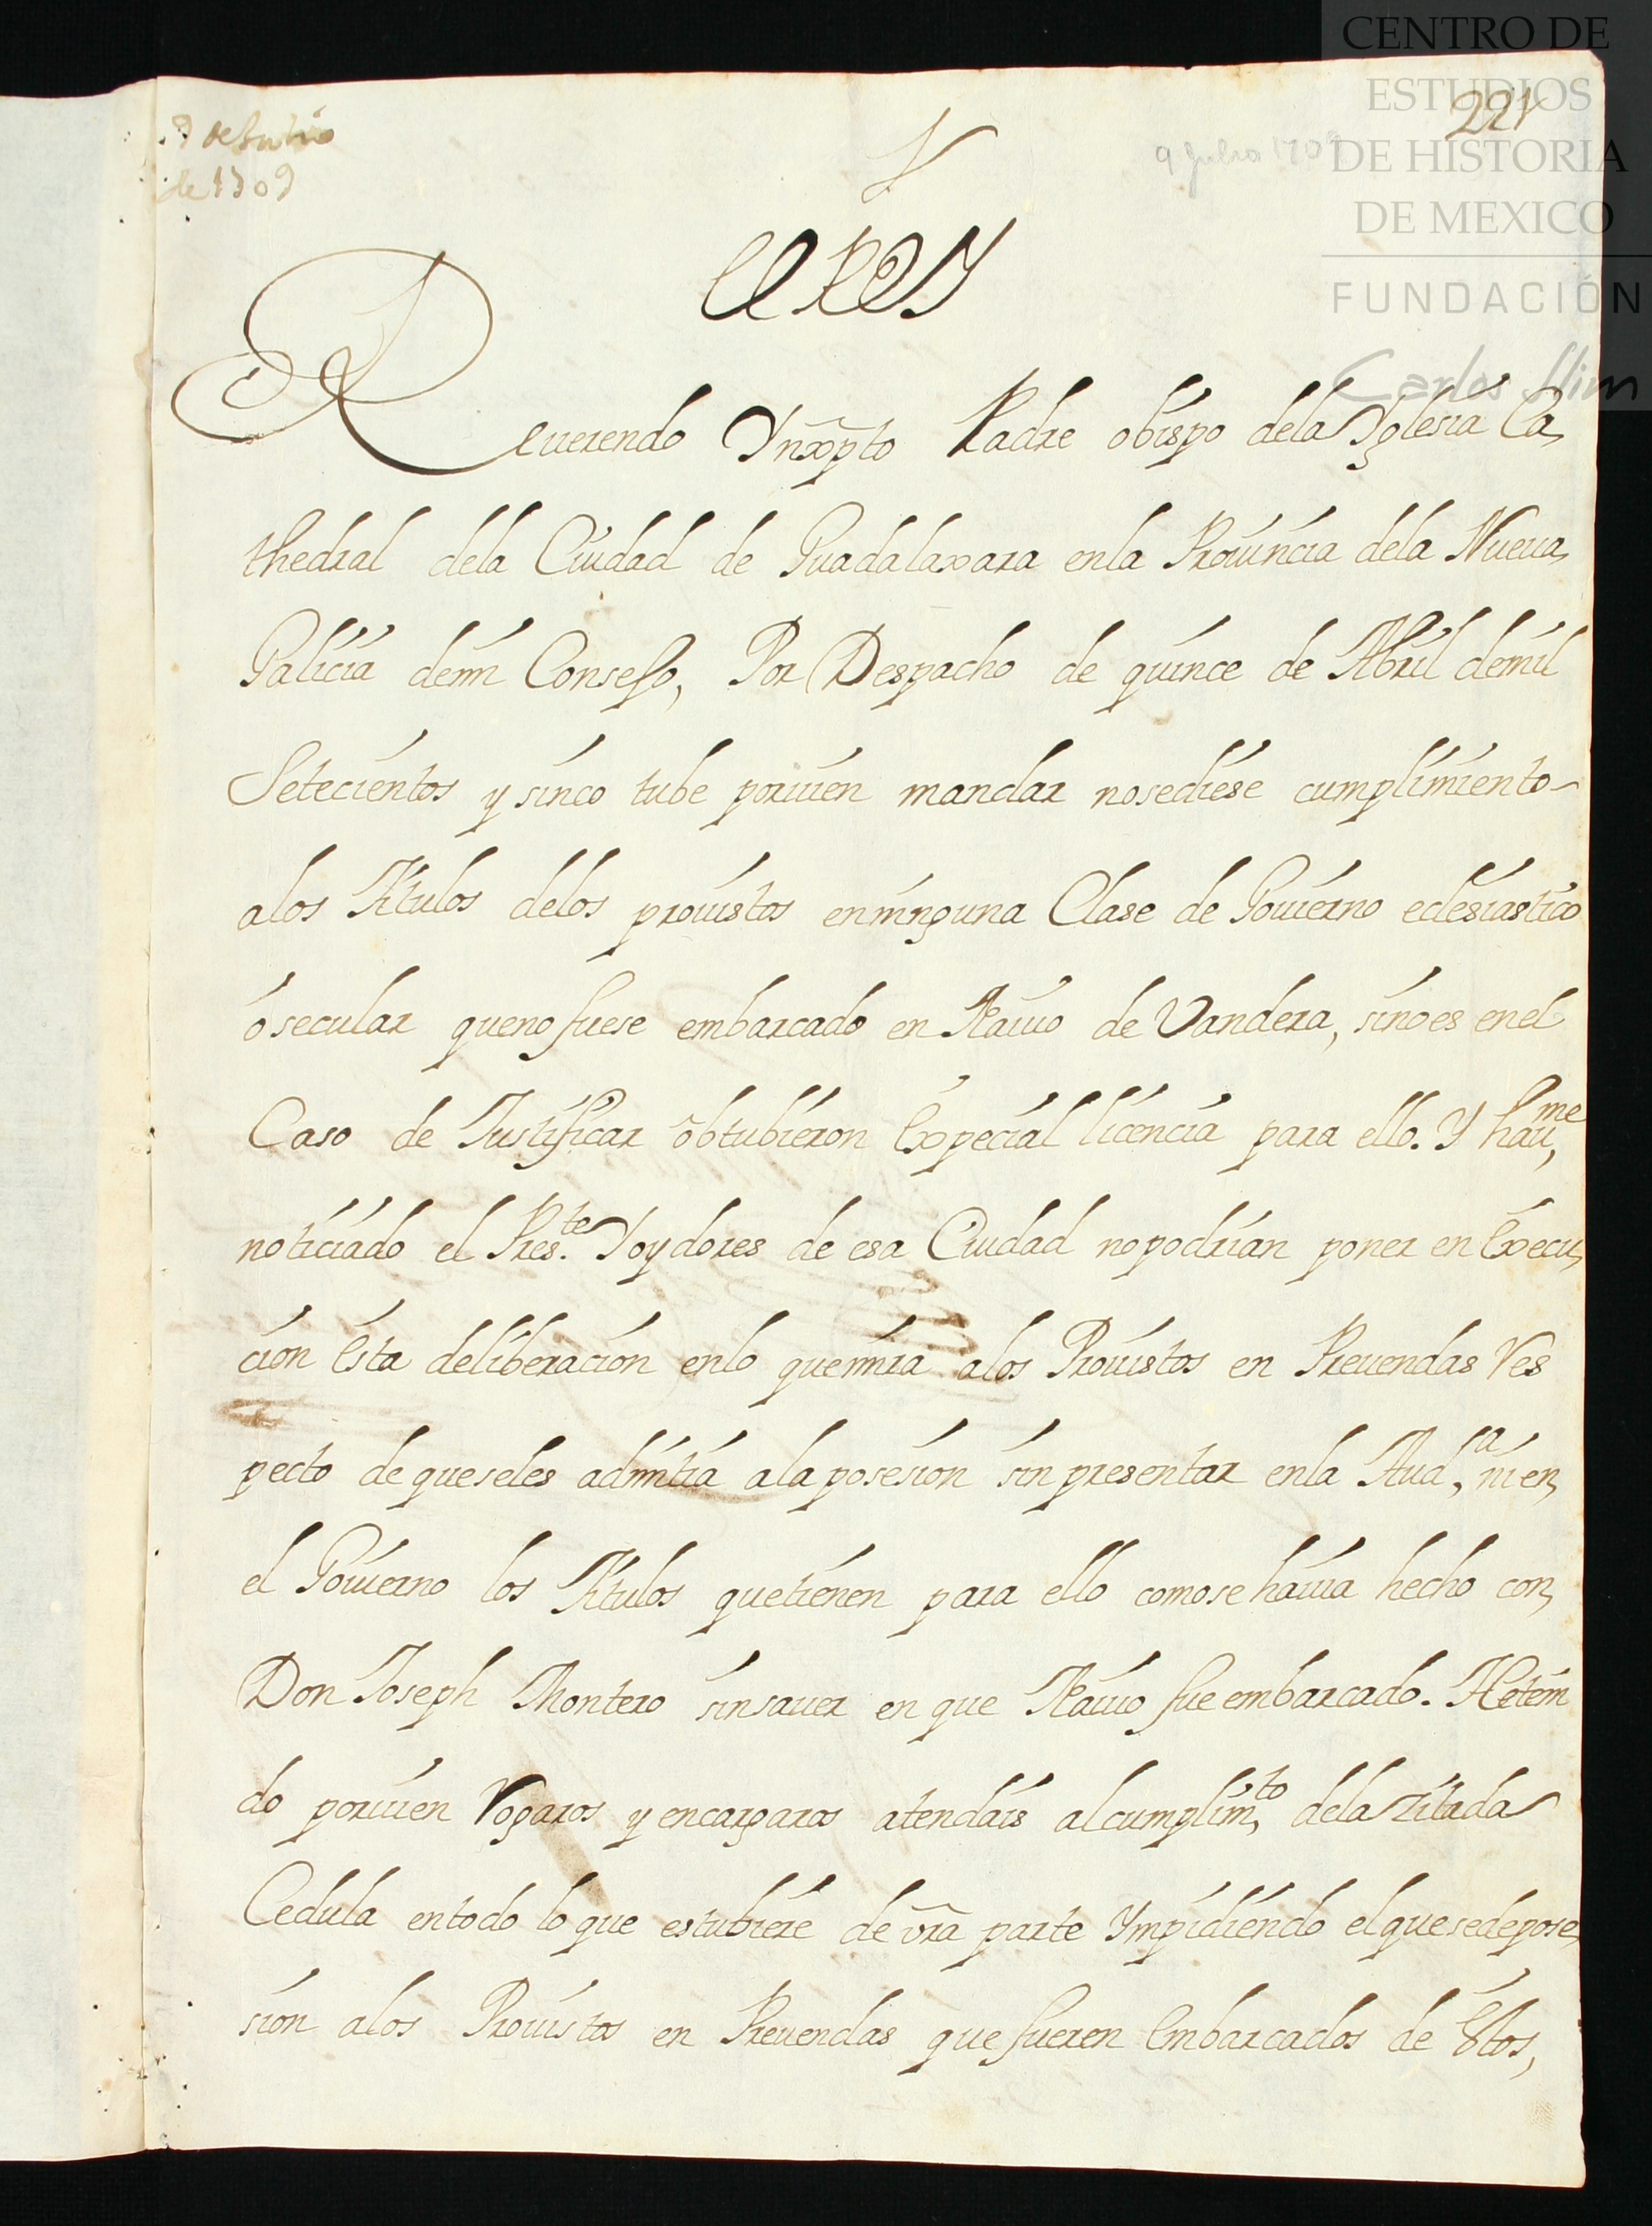 9 de Julio
de 1709
9 Julio 1709
221
CENTRO DE
ESTUDIOS
DE HISTORIA
DE MEXICO
FUNDACIÓN
Carlos Slim
el REY
Reuerendo Ynxpto Padre obispo dela Yglesia Ca,
thedral dela Ciudad de Guadalaxara enla Prouincia dela Nueua,
Galicia demi Consejo, Por Despacho de quince de Abril demil
Setecientos y sinco tube poruien mandar nosediese cumplimiento
alos Titulos delos prouistos enninguna Clase de Gouierno eclesiastico
ó secular queno fuese embarcado en Nauio de Vandera, sinoes enel
Caso de Justificar obtubieron expecial licencia para ello. Y hauime,
noticiado el Pres.te Yoydores de esa Ciudad nopodrian poner en execu,
cion esta deliberacion enlo quemira alos Prouistos en Preuendas Res
pecto de queseles admitia ala posesion sin presentar enla Aud,a ni en,
el Gouierno los Titulos quetienen para ello comose hauia hecho con,
Don Joseph Montero sinsauer en que Nauio fue embarcado. Hetem
do poruien Rogaros y encargaros atendais alcumplim,to dela zitada
Cedula entodo lo que estubiere de vra parte Ympidiendo elquesedepose,
sion alos Prouistos en Preuendas que fueren embarcados de estos,